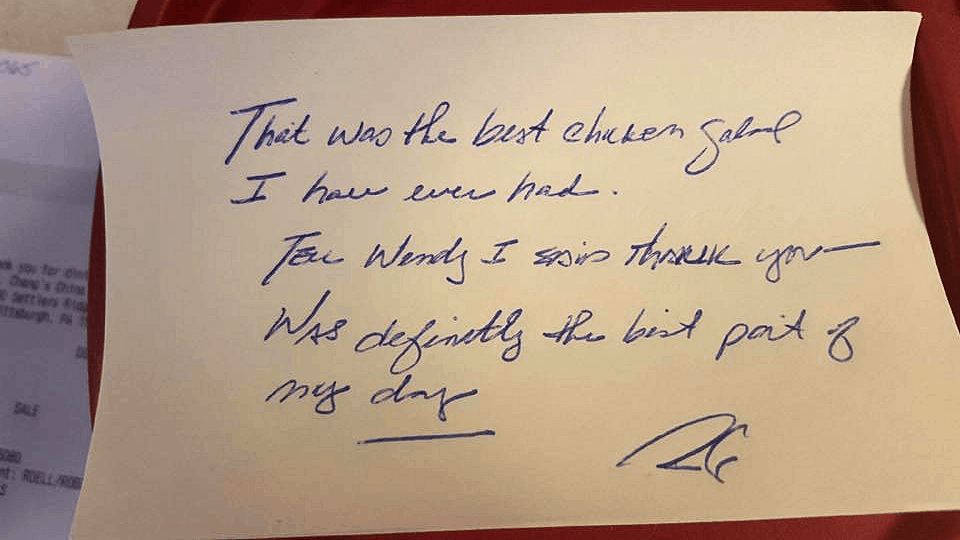 065
That was the best chicken Salad
I have ever had.
Tell Wendy I said thank you—
Was definetly the best part of
my day
you for din
Chang's China
Settlers
ittsburgh, PA
SALE
ROELL/ROB